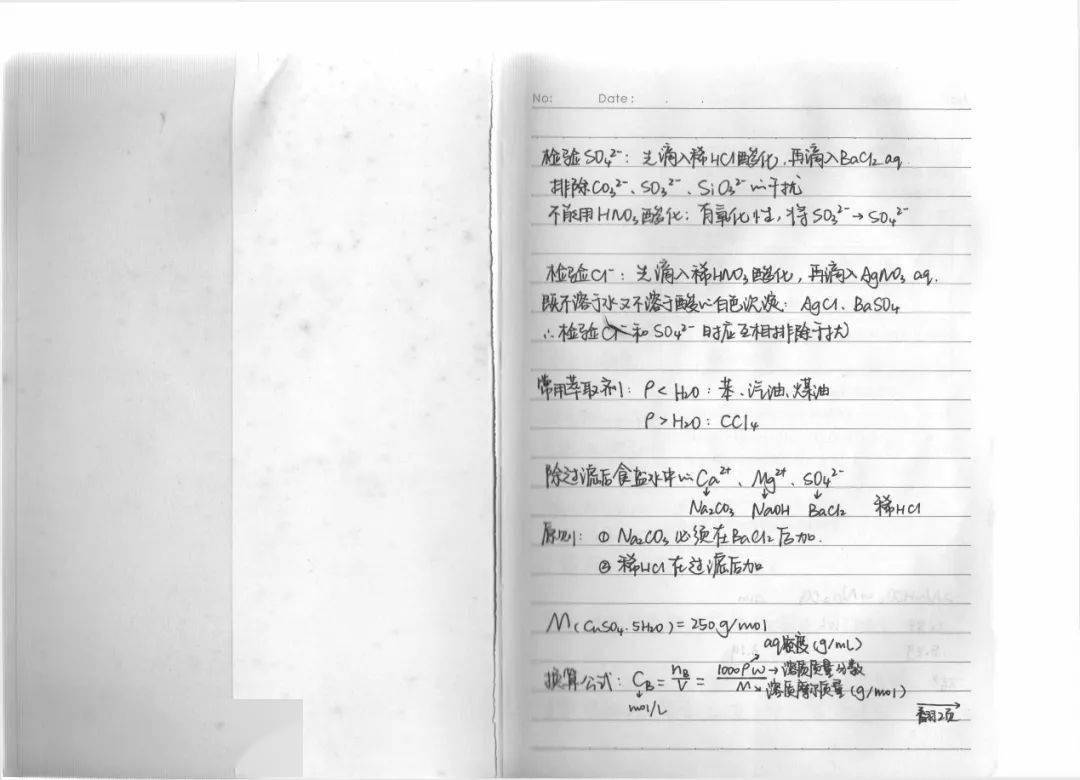 No: Date: . .
检验SO₄²⁻: 先滴入稀HCl酸化,再滴入BaCl₂ aq.
排除CO₃²⁻、SO₃²⁻、SiO₃²⁻的干扰
不能用HNO₃酸化: 有氧化性,将SO₃²⁻→SO₄²⁻
检验Cl⁻: 先滴入稀HNO₃酸化,再滴入AgNO₃ aq.
既不溶于水又不溶于酸的白色沉淀: AgCl、BaSO₄
∴检验Cl⁻和SO₄²⁻时应互相排除干扰
常用萃取剂: ρ<H₂O: 苯、汽油、煤油
ρ>H₂O: CCl₄
除过滤后食盐水中的Ca²⁺、Mg²⁺、SO₄²⁻
↓ ↓ ↓
Na₂CO₃ NaOH BaCl₂ 稀HCl
原则: ① Na₂CO₃必须在BaCl₂后加.
② 稀HCl在过滤后加
M(CuSO₄·5H₂O)=250g/mol
aq密度(g/mL)
换算公式: C_B = n_B/V = 1000ρw/M
→溶质质量分数
溶质摩尔质量(g/mol)
mol/L
翻2页